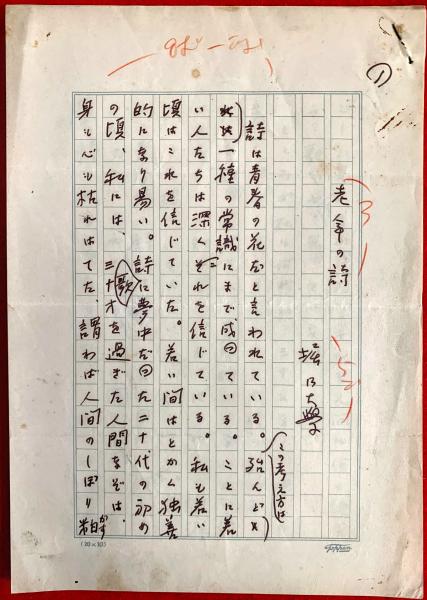 ①
老年の詩
堀口大學
詩は青春の花だと言われている。殆んど
この考え方は
一種の常識にまで成っている。ことに若
い人たちは深くそれを信じている。私も若い
頃はこれを信じていた。若い間はとかく独善
的になり易い。詩に夢中だった二十代の初め
の頃、私には、三十才を過ぎた人間なぞは、
身も心も枯れはてた、謂わば人間のしぼり粕
かす
(20×10)
Toppan